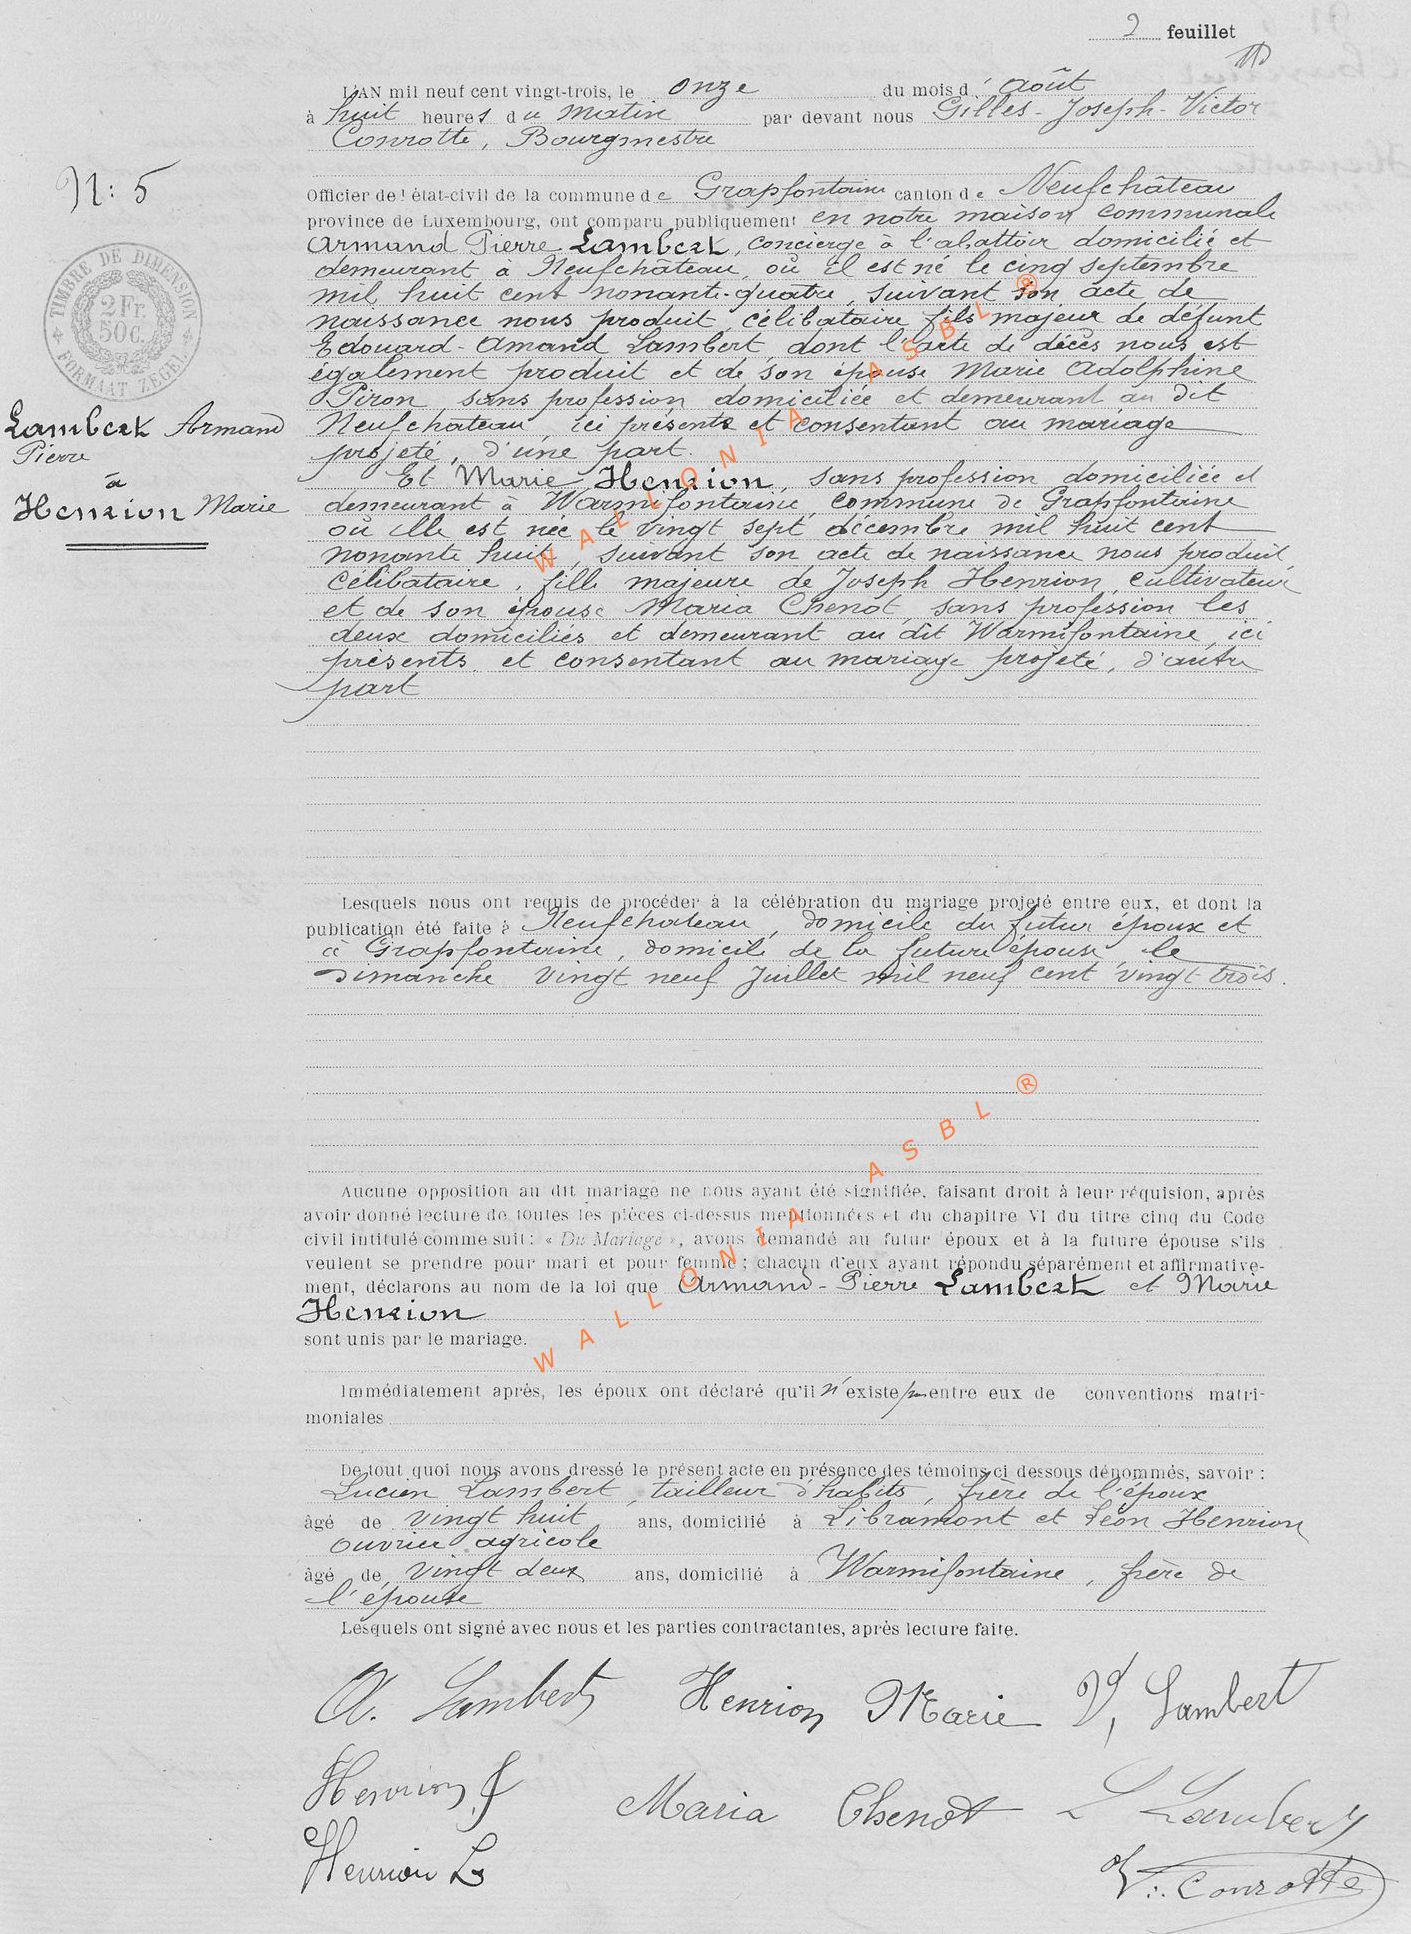 2 feuillet
L'AN mil neuf cent vingt-trois, le onze du mois d' août
à huit heures du matin par devant nous Gilles-Joseph-Victor
Conrotte, Bourgmestre
N: 5
Officier de l'état-civil de la commune de Grapfontaine canton de Neufchâteau
province de Luxembourg, ont comparu publiquement en notre maison communale
Armand Pierre Lambert, concierge à l'abattoir domicilié et
demeurant à Neufchâteau, où il est né le cinq septembre
mil huit cent nonante-quatre, suivant son acte de
naissance nous produit, célibataire, fils majeur de défunt
Edouard-Amand Lambert, dont l'acte de décès nous est
également produit et de son épouse Marie Adolphine
Piron sans profession domiciliée et demeurant au dit
Neufchateau, ici présente et consentant au mariage
projeté, d'une part.
Et Marie Henrion, sans profession domiciliée et
demeurant à Warmifontaine, commune de Grapfontaine
où elle est née le vingt sept décembre mil huit cent
nonante huit, suivant son acte de naissance nous produit,
célibataire, fille majeure de Joseph Henrion, cultivateur
et de son épouse Maria Chenot, sans profession les
deux domiciliés et demeurant au dit Warmifontaine, ici
présents et consentant au mariage projeté, d'autre
part
TIMBRE DE DIMENSION
2 Fr.
50 c.
FORMAAT ZEGEL
Lambert Armand
Pierre
à
Henrion Marie
Lesquels nous ont requis de procéder à la célébration du mariage projeté entre eux, et dont la
publication été faite à Neufchateau, domicile du futur époux et
à Grapfontaine, domicile de la future épouse, le
dimanche vingt neuf Juillet mil neuf cent vingt trois.
Aucune opposition au dit mariage ne nous ayant été signifiée, faisant droit à leur réquision, après
avoir donné lecture de toutes les pièces ci-dessus mentionnées et du chapitre VI du titre cinq du Code
civil intitulé comme suit: « Du Mariage », avons demandé au futur époux et à la future épouse s'ils
veulent se prendre pour mari et pour femme; chacun d'eux ayant répondu séparément et affirmative-
ment, déclarons au nom de la loi que Armand-Pierre Lambert et Marie
Henrion
sont unis par le mariage.
Immédiatement après, les époux ont déclaré qu'il n'existe pas entre eux de conventions matri-
moniales
De tout quoi nous avons dressé le présent acte en présence des témoins ci dessous dénommés, savoir :
Lucien Lambert, tailleur d'habits, frère de l'époux
âgé de vingt huit ans, domicilié à Libramont et Léon Henrion
ouvrier agricole
âgé de vingt deux ans, domicilié à Warmifontaine, frère de
l'épouse
Lesquels ont signé avec nous et les parties contractantes, après lecture faite.
A. Lambert Henrion Marie Vd, Lambert
Henrion J Maria Chenot L Lambert
Henrion L V. Conrotte
WALLONIA ASBL ®
WALLONIA ASBL ®